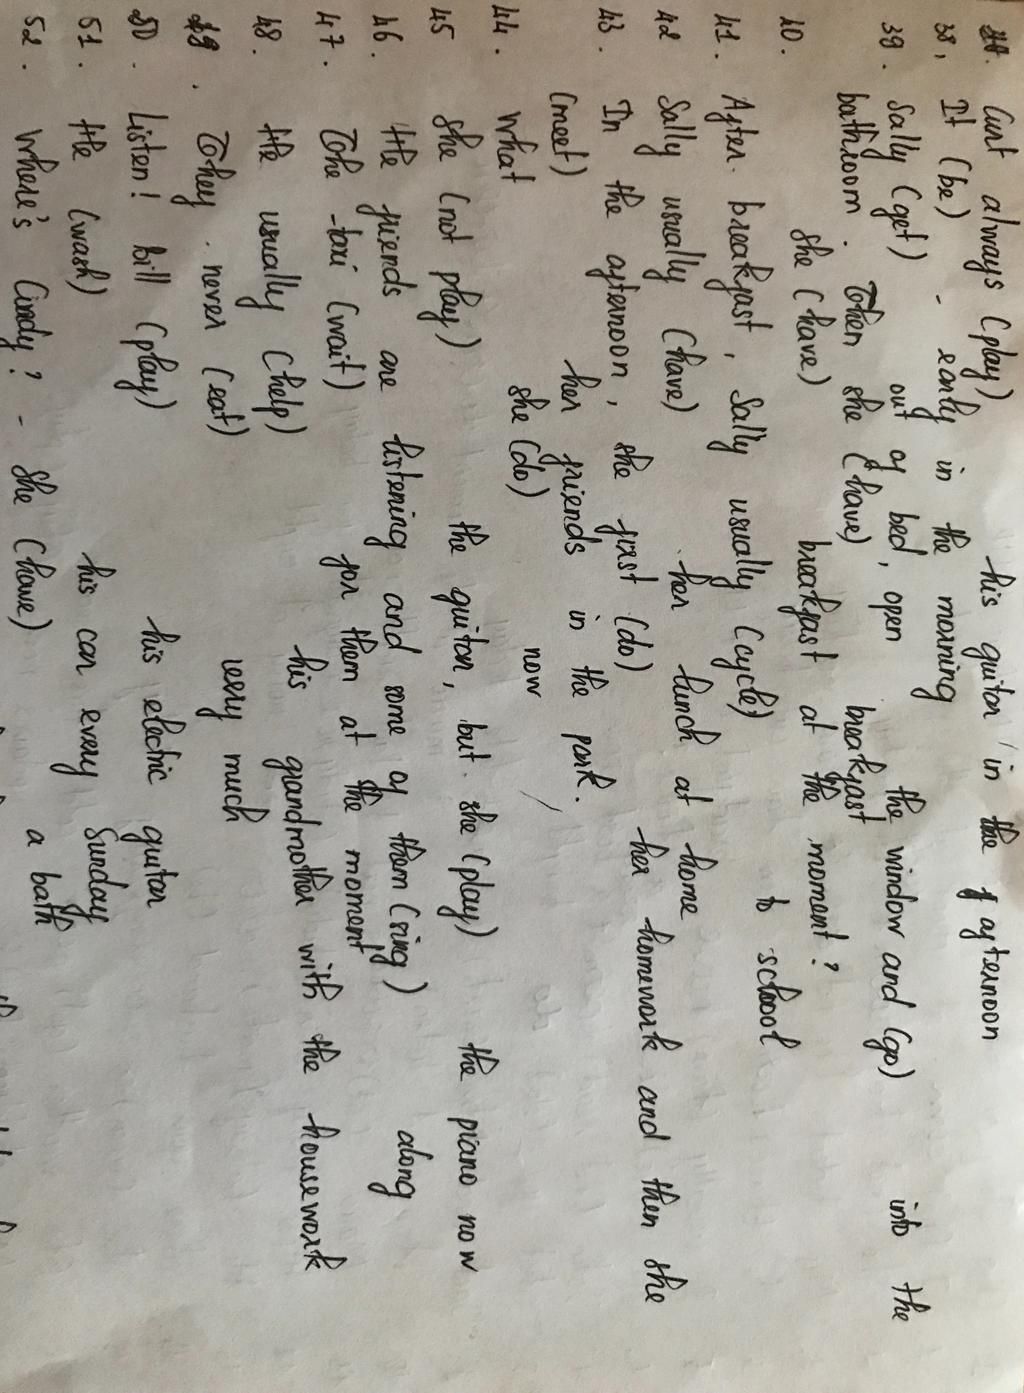 Curt always (play) his guitar in the afternoon
38, It (be) - early in the morning
39. Sally (get) out of bed, open the window and (go) into the
bathroom. Then she (have) breakfast
40. she (have) breakfast at the moment?
41. After breakfast, Sally usually (cycle) to school
42 Sally usually (have) her lunch at home
43. In the afternoon, she first (do) her homework and then she
(meet) her friends in the park.
44. What she (do) now
45 She (not play) the guitar, but she (play) the piano now
46. He friends are listening and some of them (sing) along
47. The taxi (wait) for them at the moment
48. He usually (help) his grandmother with the housework
49. They never (eat) very much
50. Listen! bill (play) his electric guitar
51. He (wash) his car every Sunday
52. Where's Cindy? - She (have) a bath